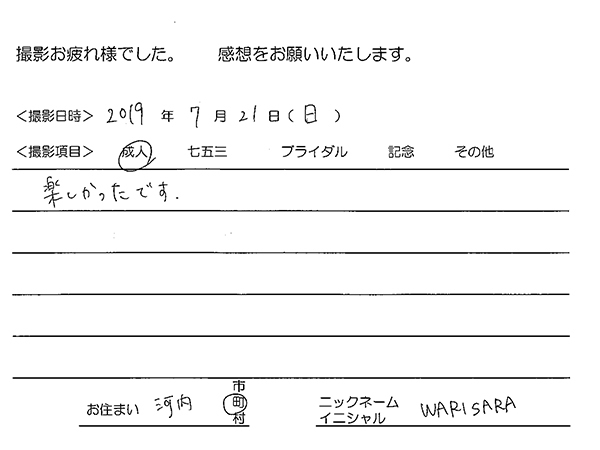 撮影お疲れ様でした。 感想をお願いいたします。
＜撮影日時＞ 2019 年 7 月 21 日 ( 日 )
＜撮影項目＞ 成人 七五三 ブライダル 記念 その他
楽しかったです.
お住まい 河内 市 町 村
ニックネーム イニシャル WARISARA